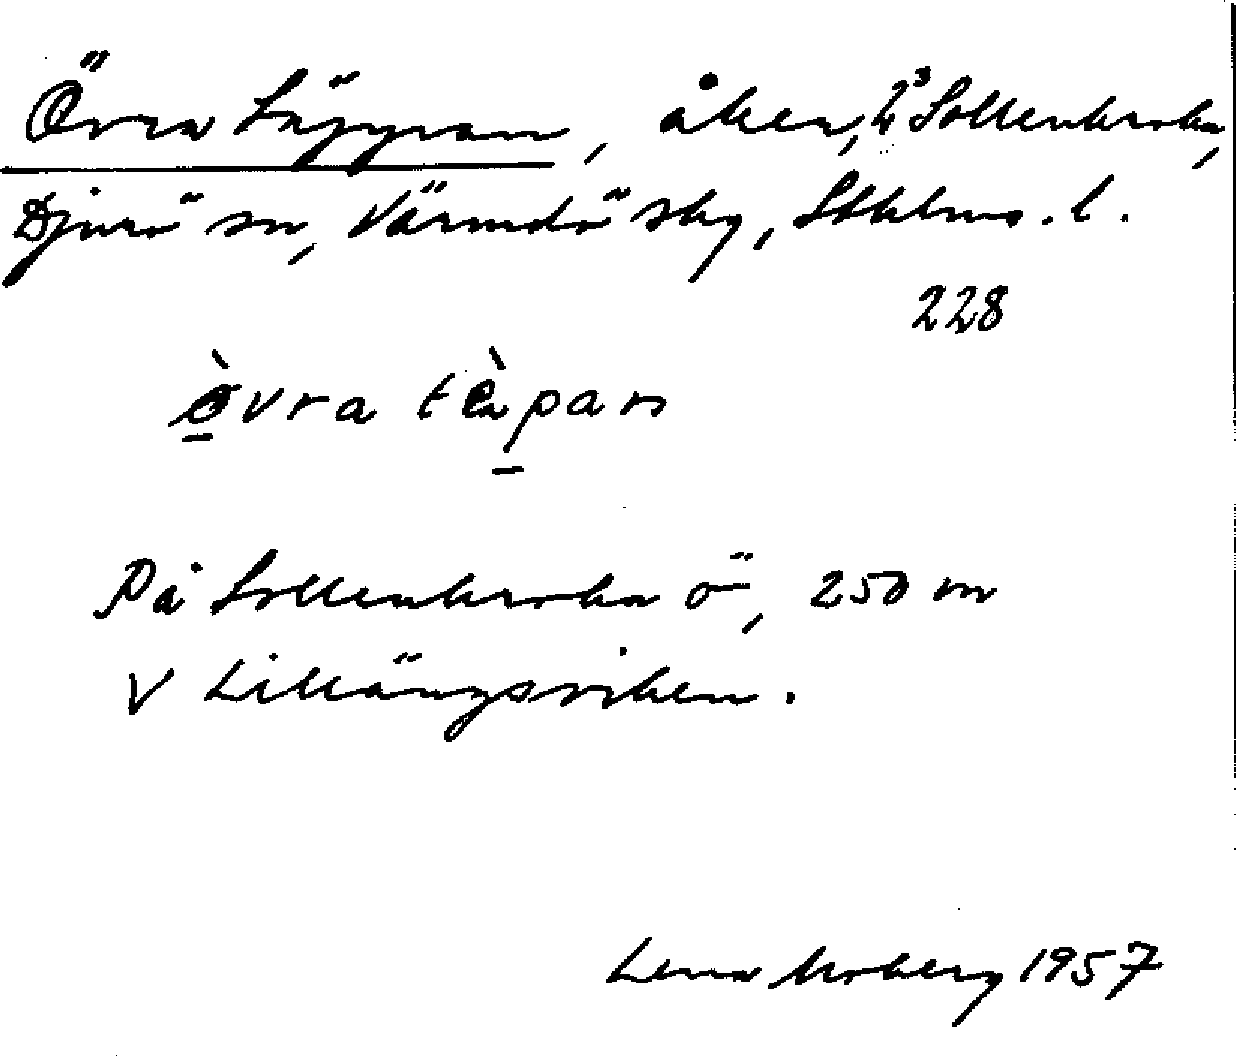 Övra Täppan, åker, 2³ Sollenkroka,
Djurö sn, Värmdö skg, Stkhlms. l.
228
òvra tæ̀pan
På Sollenkroka ö, 250 m
V Lillängsviken.
Lena Moberg 1957